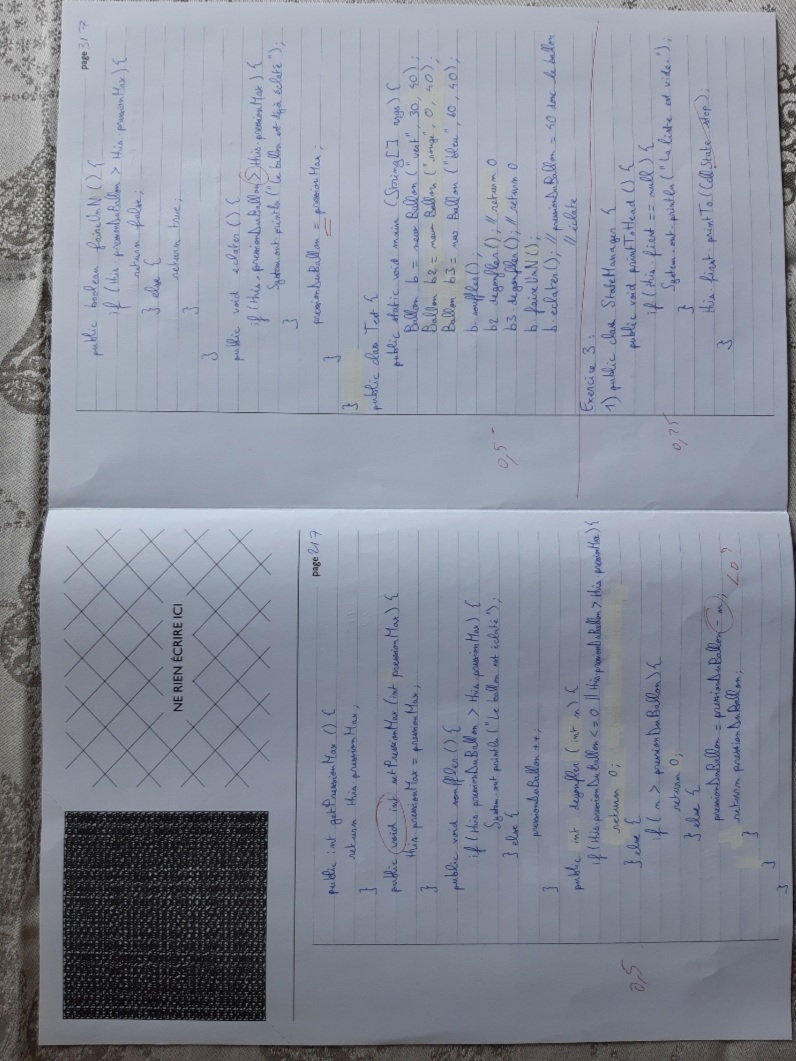 NE RIEN ÉCRIRE ICI
page 2/7
public int getPressionMax () {
return this.pressionMax;
}
public void int setPressionMax (int pressionMax) {
this.pressionMax = pressionMax;
}
public void souffler () {
if (this.pressionDuBallon > this.pressionMax) {
System.out.println ("Le ballon est éclaté");
} else {
pressionDuBallon ++;
}
public int degonfler (int n) {
if (this.pressionDuBallon <= 0 || this.pressionDuBallon > this.pressionMax) {
return 0;
} else {
if (n > pressionDuBallon) {
return 0;
} else {
pressionDuBallon = pressionDuBallon - n; < 0 ?
return pressionDuBallon;
}
}
}
0,5
page 3/7
public boolean faireUnN () {
if (this.pressionDuBallon > this.pressionMax) {
return false;
} else {
return true;
}
}
public void eclater () {
if (this.pressionDuBallon > this.pressionMax) {
System.out.println ("Le ballon est déjà éclaté");
}
pressionDuBallon = pressionMax;
}
}
public class Test {
public static void main (String[] args) {
Ballon b = new Ballon ("vert", 30, 40);
Ballon b2 = new Ballon ("rouge", 0, 40);
Ballon b3 = new Ballon ("bleu", 60, 40);
b.souffler();
b2.degonfler(); // return 0
b3.degonfler(); // return 0
b.faireUnN();
b.eclater(); // pressionDuBallon = 40 donc le ballon
// éclate
0,5
Exercice 3 :
1) public class StateManager {
public void printToHead () {
if (this.first == null) {
System.out.println ("La liste est vide.");
}
this.first.printTo ((CellState stop);
}
0,25